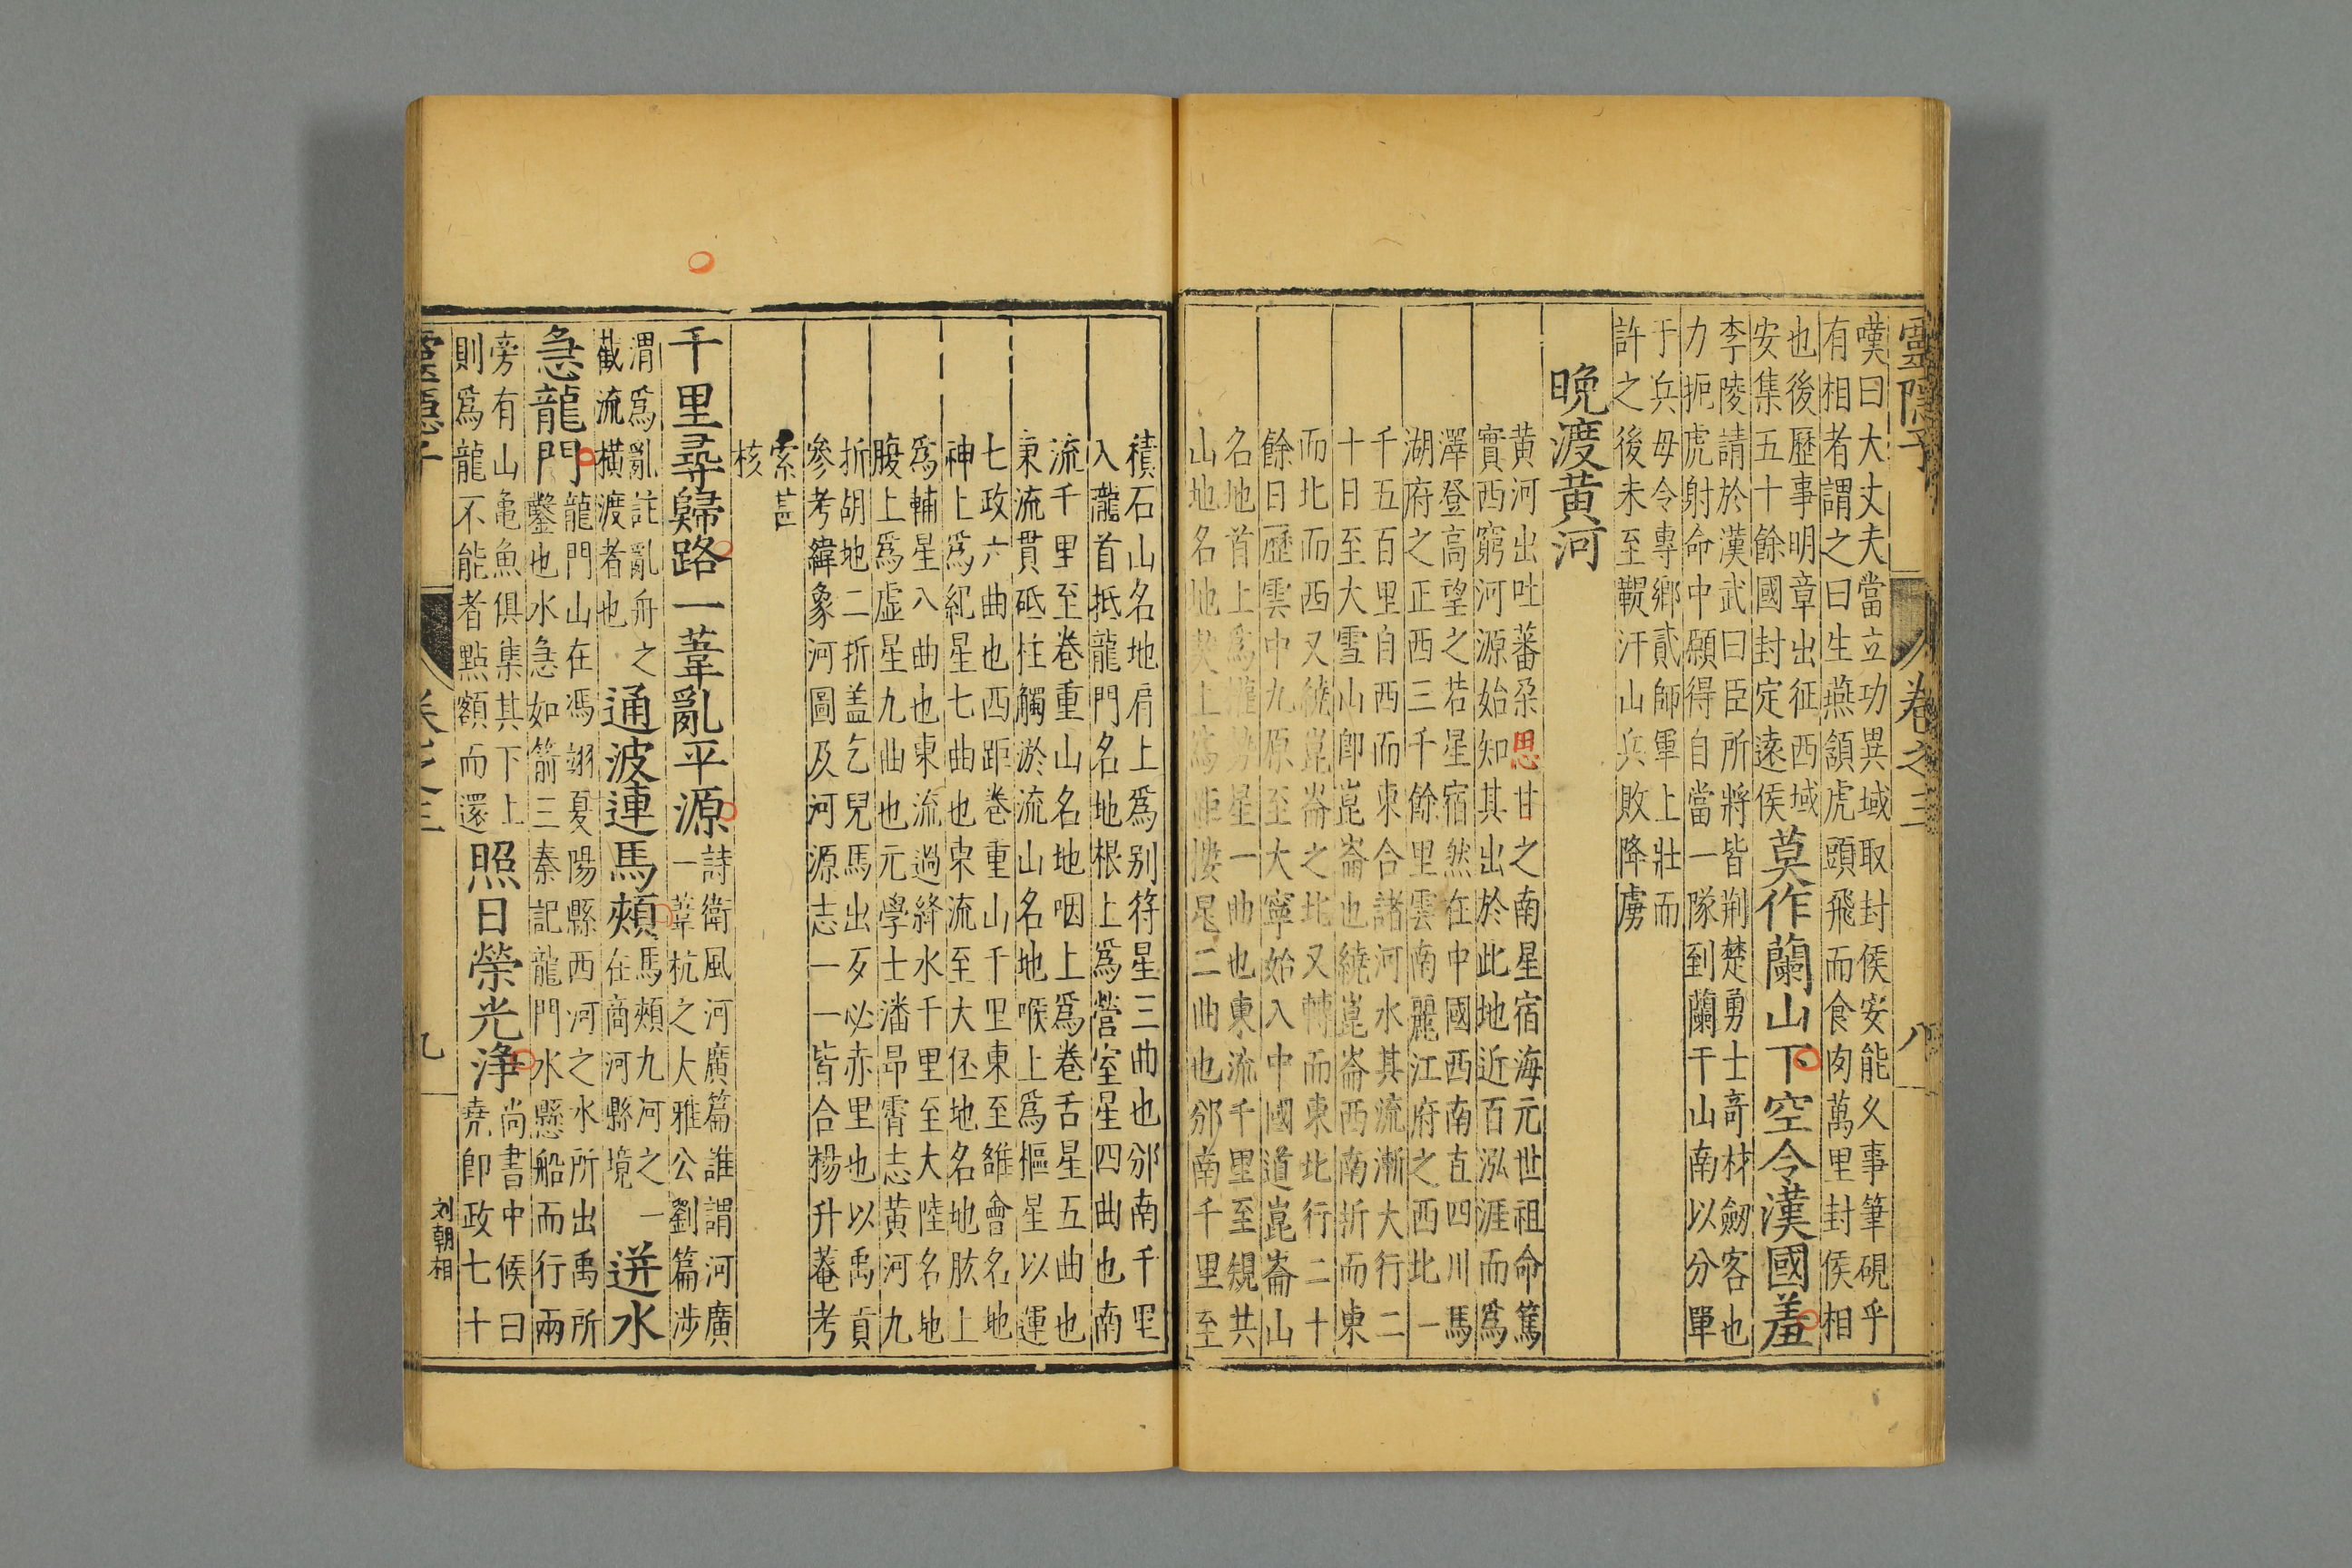 靈隱子 卷之三 八
嘆曰大丈夫當立功異域取封侯安能久事筆硯乎
有相者謂之曰生燕頷虎頭飛而食肉萬里封侯相
也後歷事明章出征西域
安集五十餘國封定遠侯
莫作蘭山下空令漢國羞
李陵請於漢武曰臣所將皆荆楚勇士奇材劒客也
力扼虎射命中願得自當一隊到蘭干山南以分單
于兵毋令專鄉貳師軍上壯而
許之後未至鞮汗山兵敗降虜
晚渡黄河
黄河出吐蕃朶思甘之南星宿海元世祖命篤
實西窮河源始知其出於此地近百泓涯而爲
澤登高望之若星宿然在中國西南直四川馬
湖府之正西三千餘里雲南麗江府之西北一
千五百里自西而東合諸河水其流漸大行二
十日至大雪山卽崑崙也繞崑崙西南折而東
而北而西又繞崑崙之北又轉而東北行二十
餘日歷雲中九原至大寧始入中國道崑崙山
名地首上爲權勢星一曲也東流千里至規共
山地名地契上爲距樓星二曲也邠南千里至
積石山名地肩上爲别符星三曲也邠南千里
入隴首抵龍門名地根上爲營室星四曲也南
流千里至卷重山名地咽上爲卷舌星五曲也
東流貫砥柱觸淤流山名地喉上爲樞星以運
七政六曲也西距卷重山千里東至雒會名地
神上爲紀星七曲也東流至大伾地名地肱上
爲輔星八曲也東流過絳水千里至大陸名地
腹上爲虚星九曲也元學士潘昂霄志黄河九
折胡地二折盖乞兒馬出歹必赤里也以禹貢
參考緯象河圖及河源志一一皆合楊升菴考
索甚
核
千里尋歸路一葦亂平源
詩衛風河廣篇誰謂河廣
一葦杭之大雅公劉篇涉
渭爲亂註亂舟之
截流橫渡者也
通波連馬頰
馬頰九河之一
在商河縣境
迸水
急龍門
龍門山在馮翊夏陽縣西河之水所出禹所
鑿也水急如箭三秦記龍門水懸船而行兩
旁有山龜魚俱集其下上
則爲龍不能者點額而還
照日榮光淨
尚書中候曰
堯卽政七十
靈隱子 卷之三 九
刘朝相